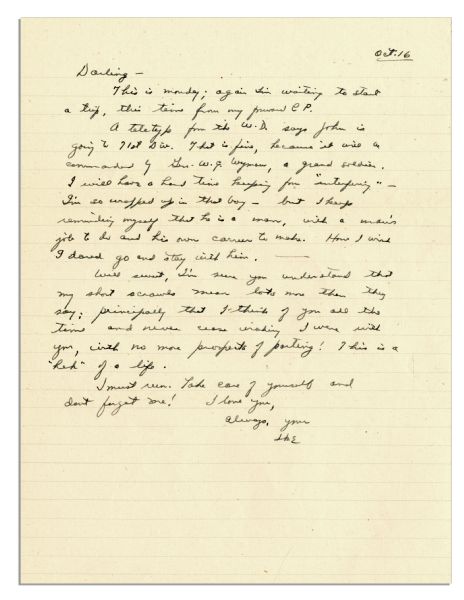 Oct. 16
Darling —
This is monday; again I'm waiting to start
a trip, this time from my forward C.P.
A teletype from the W.D. says John is
going to 71st Div. That is fine, because it will be
commanded by Gen. W.G. Wyman, a grand soldier.
I will have a hard time keeping from "interfering" —
I'm so wrapped up in that boy — but I keep
reminding myself that he is a man, with a man's
job to do and his own career to make. How I wish
I dared go and stay with him. —
Well sweet, I'm sure you understand that
my short scrawls mean lots more than they
say; principally that I think of you all the
time and never cease wishing I were with
you, with no more prospects of parting! This is a
"heck" of a life.
I must run. Take care of yourself and
don't forget me! I love you,
Always, your
Ike